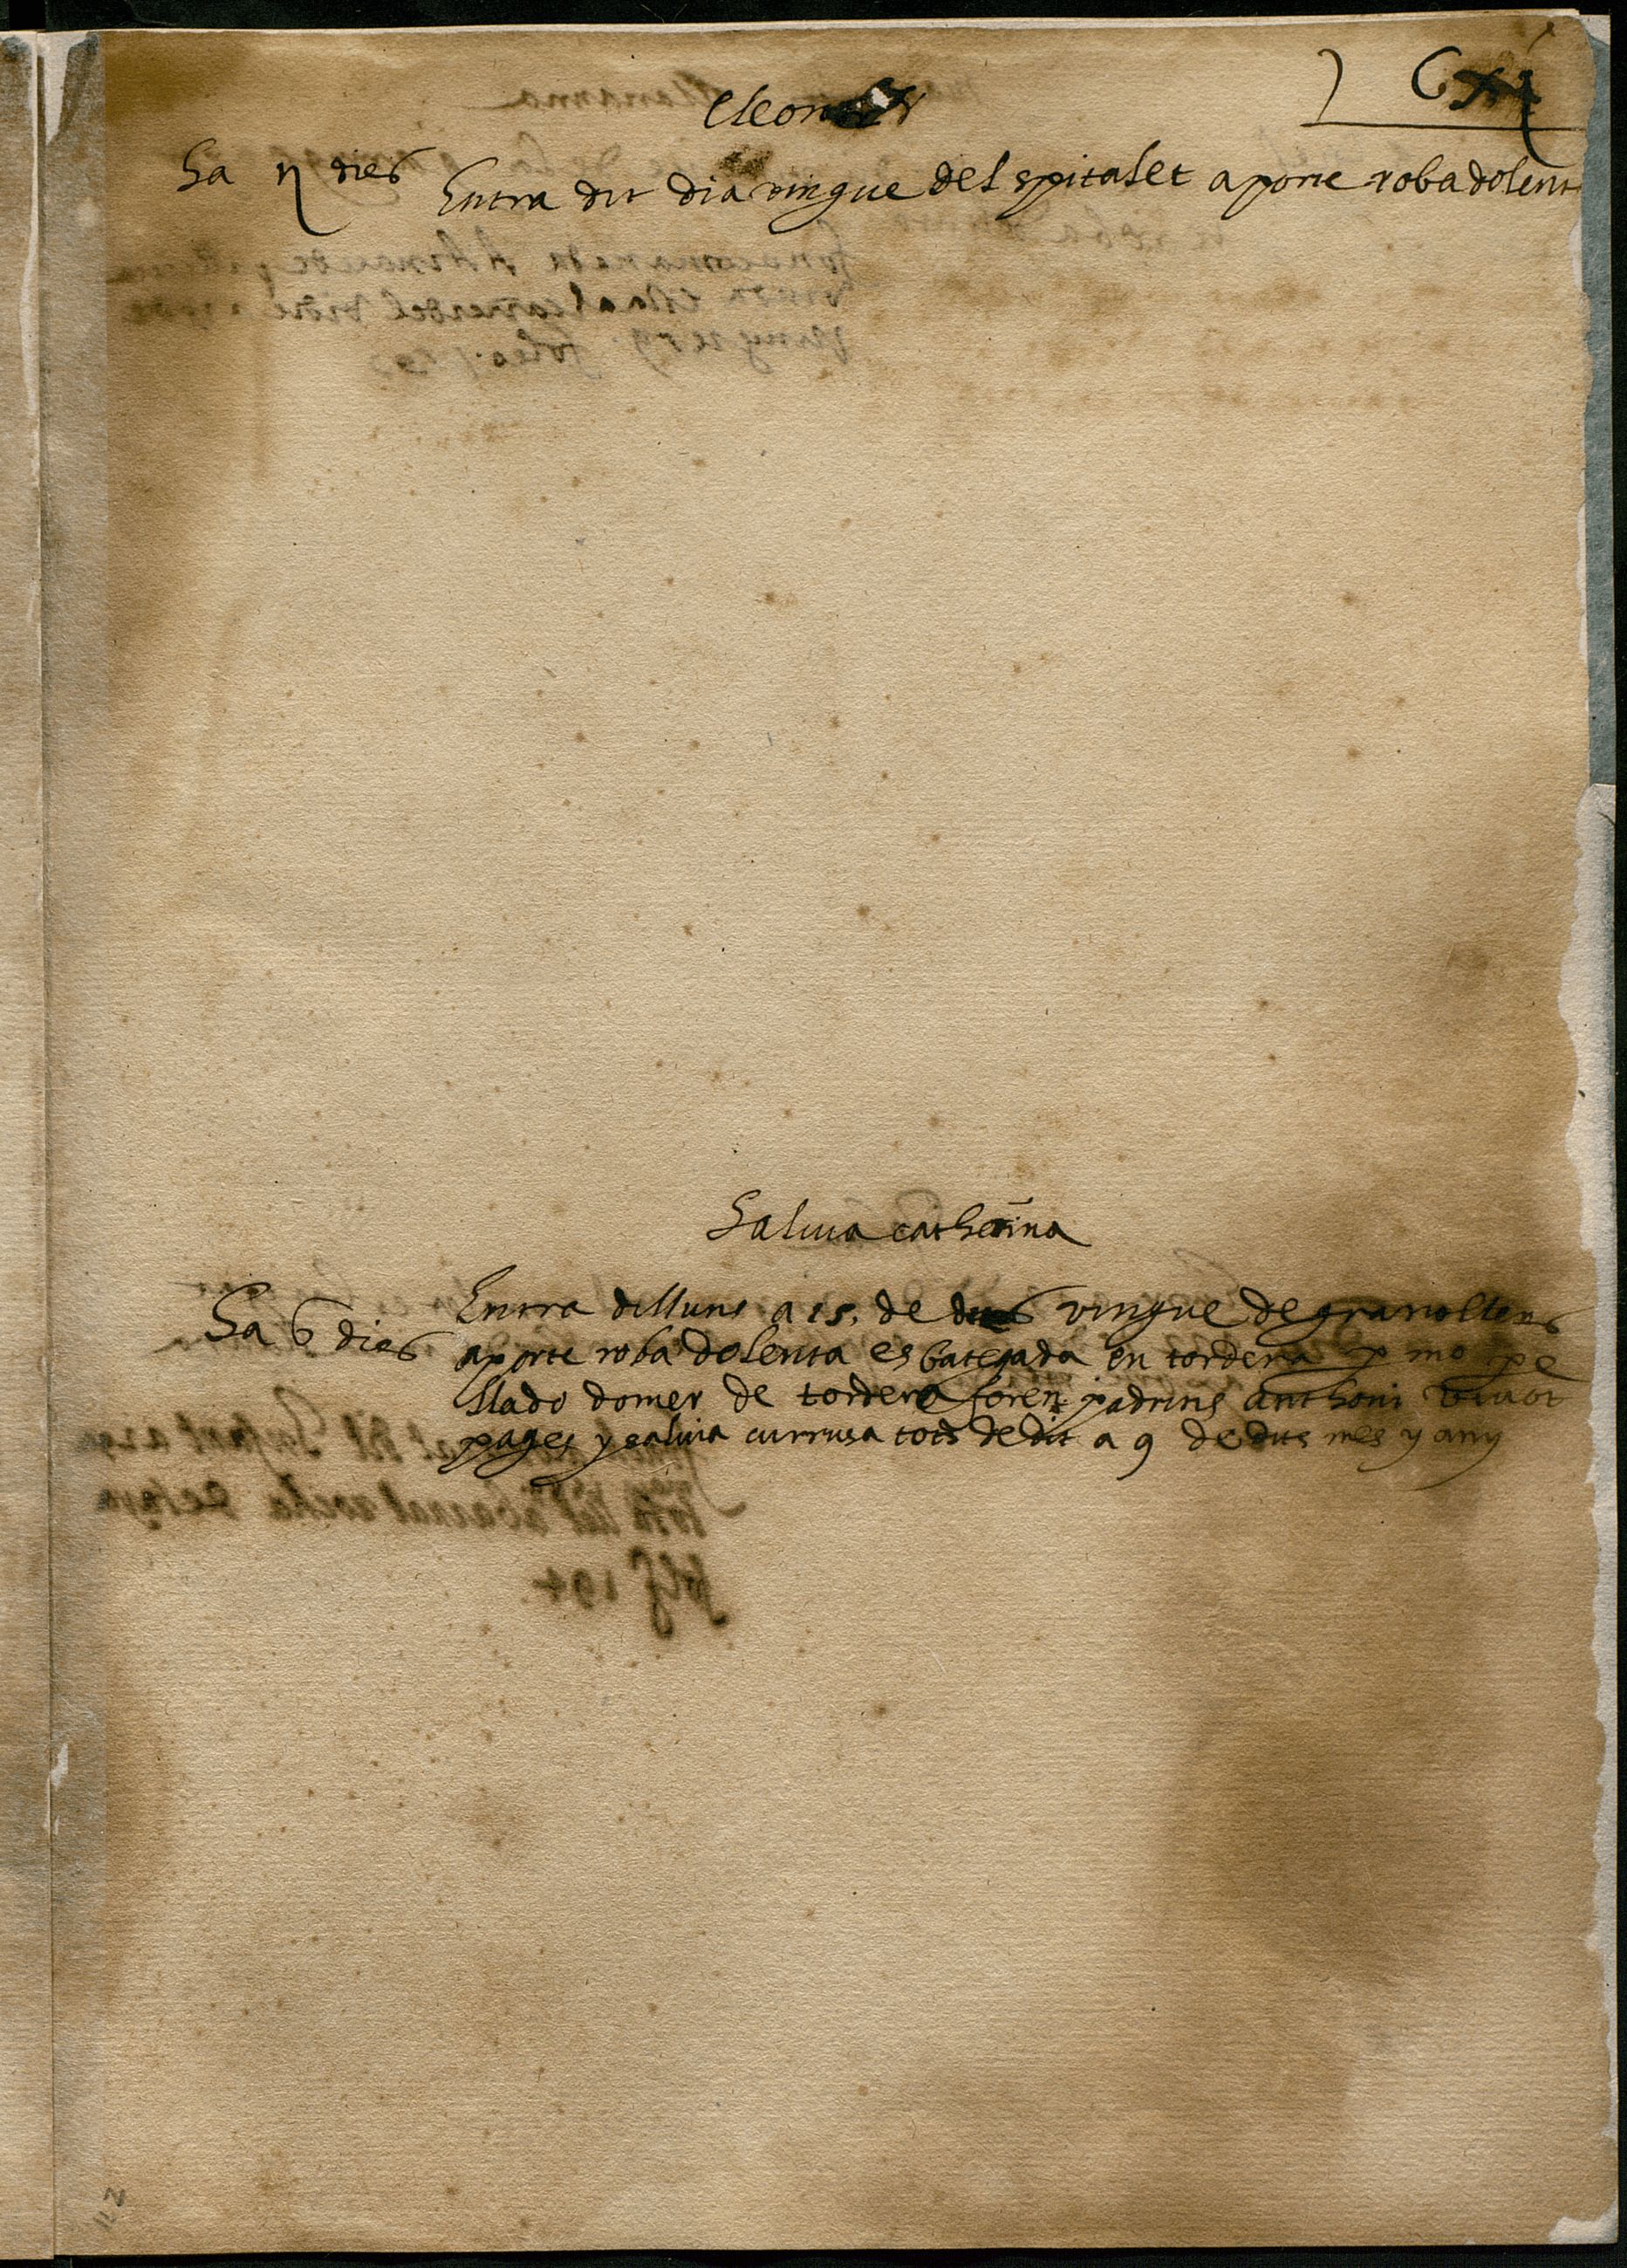 Cxi
Eleonor
Ha n dies Entra dit dia vingue del spitalet aporte roba dolent
Salvia catherina
Ha 6 dies Entra dilluns a 15. de vingue de granollers
aporte roba dolenta es bategada en tordera p mo pe
llado domer de tordera foren padrins anthoni
pages y salvia currusa tots de dit a 9 de dits mes y any